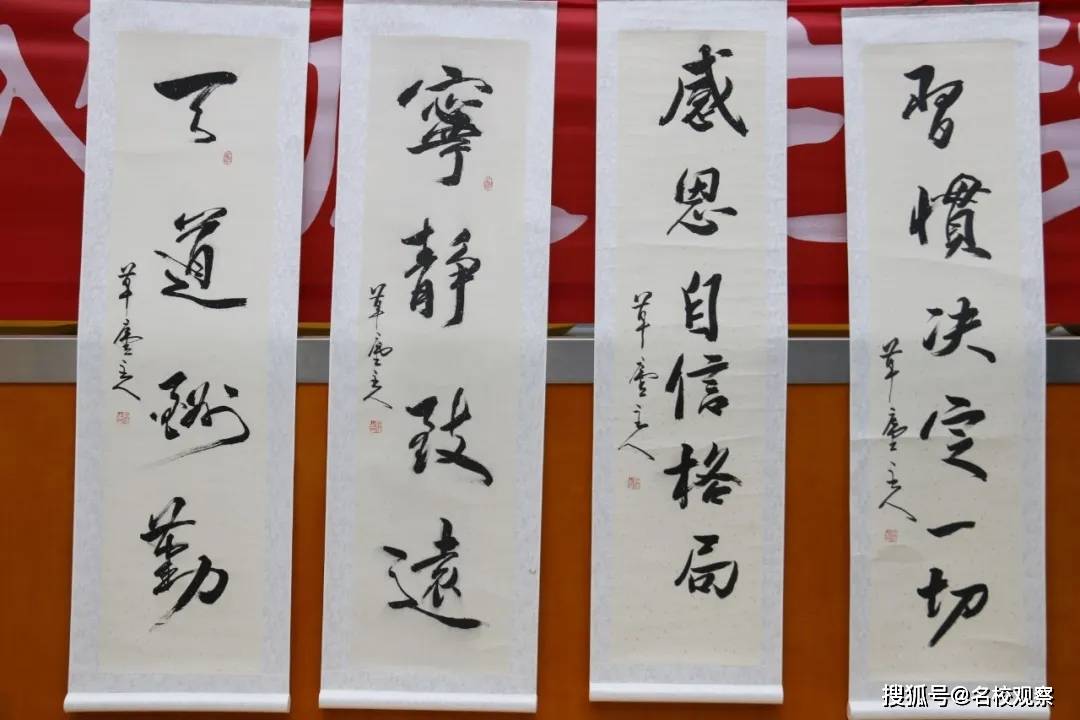 天道酬勤
草堂主人
寧靜致遠
草堂主人
感恩自信格局
草堂主人
習慣决定一切
草堂主人
搜狐号@名校观察